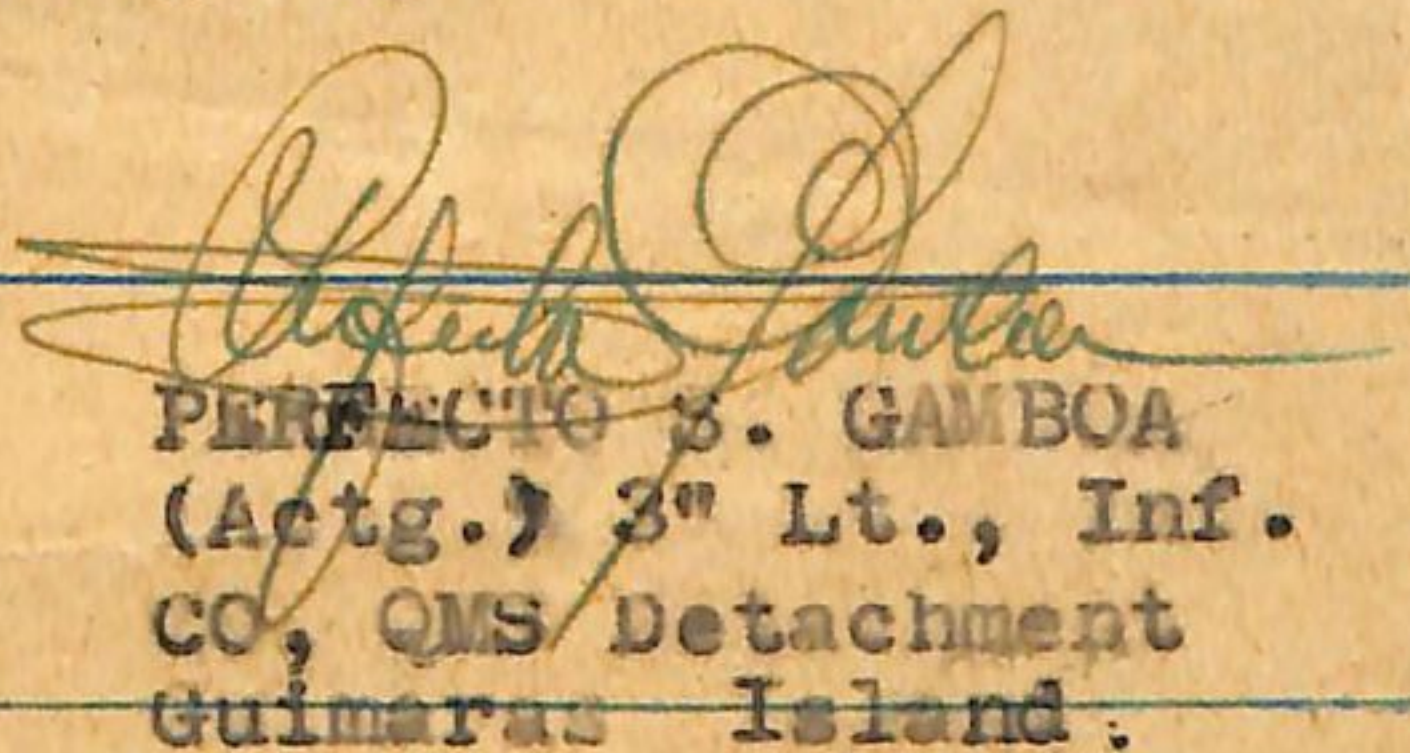 PERFECTO S. GAMBOA
(Actg.) 3" Lt., Inf.
CO, QMS Detachment
Guimaras Island.